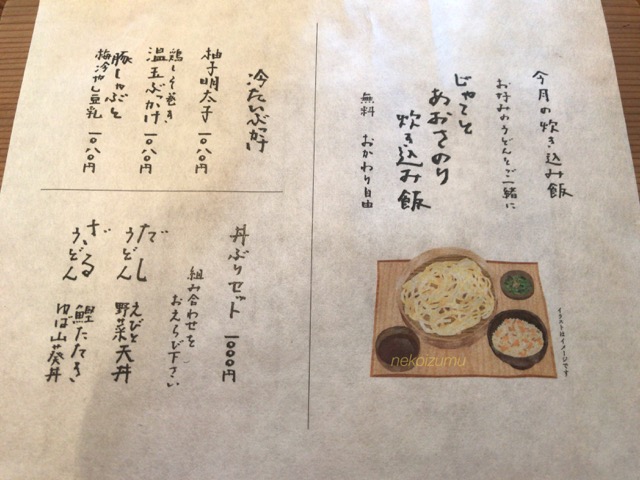 今月の炊き込み飯
お好みのうどんとご一緒に
じゃこと
あおさのり
炊き込み飯
無料 おかわり自由
イラストはイメージです
nekoizumu
冷たいぶっかけ
柚子明太子 一〇八〇円
鶏しそ巻き
温玉ぶっかけ 一〇八〇円
豚しゃぶと
梅冷やし豆乳 一〇八〇円
丼ぶりセット 一〇〇〇円
組み合わせを
おえらび下さい
だし
うどん
えびと
野菜天丼
ざる
うどん
鰹たたき
ゆば山葵丼